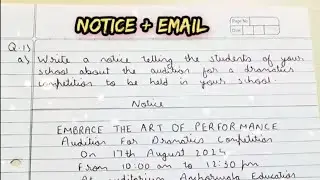 NOTICE + EMAIL
Page No.
Date
Q.1)
a) Write a notice telling the students of your
school about the audition for a dramatics
competition to be held in your school.
Notice
EMBRACE THE ART OF PERFORMANCE
Audition For Dramatics Competition
On 17th August 2024
From 10:00 am to 12:30 pm
At auditorium Education